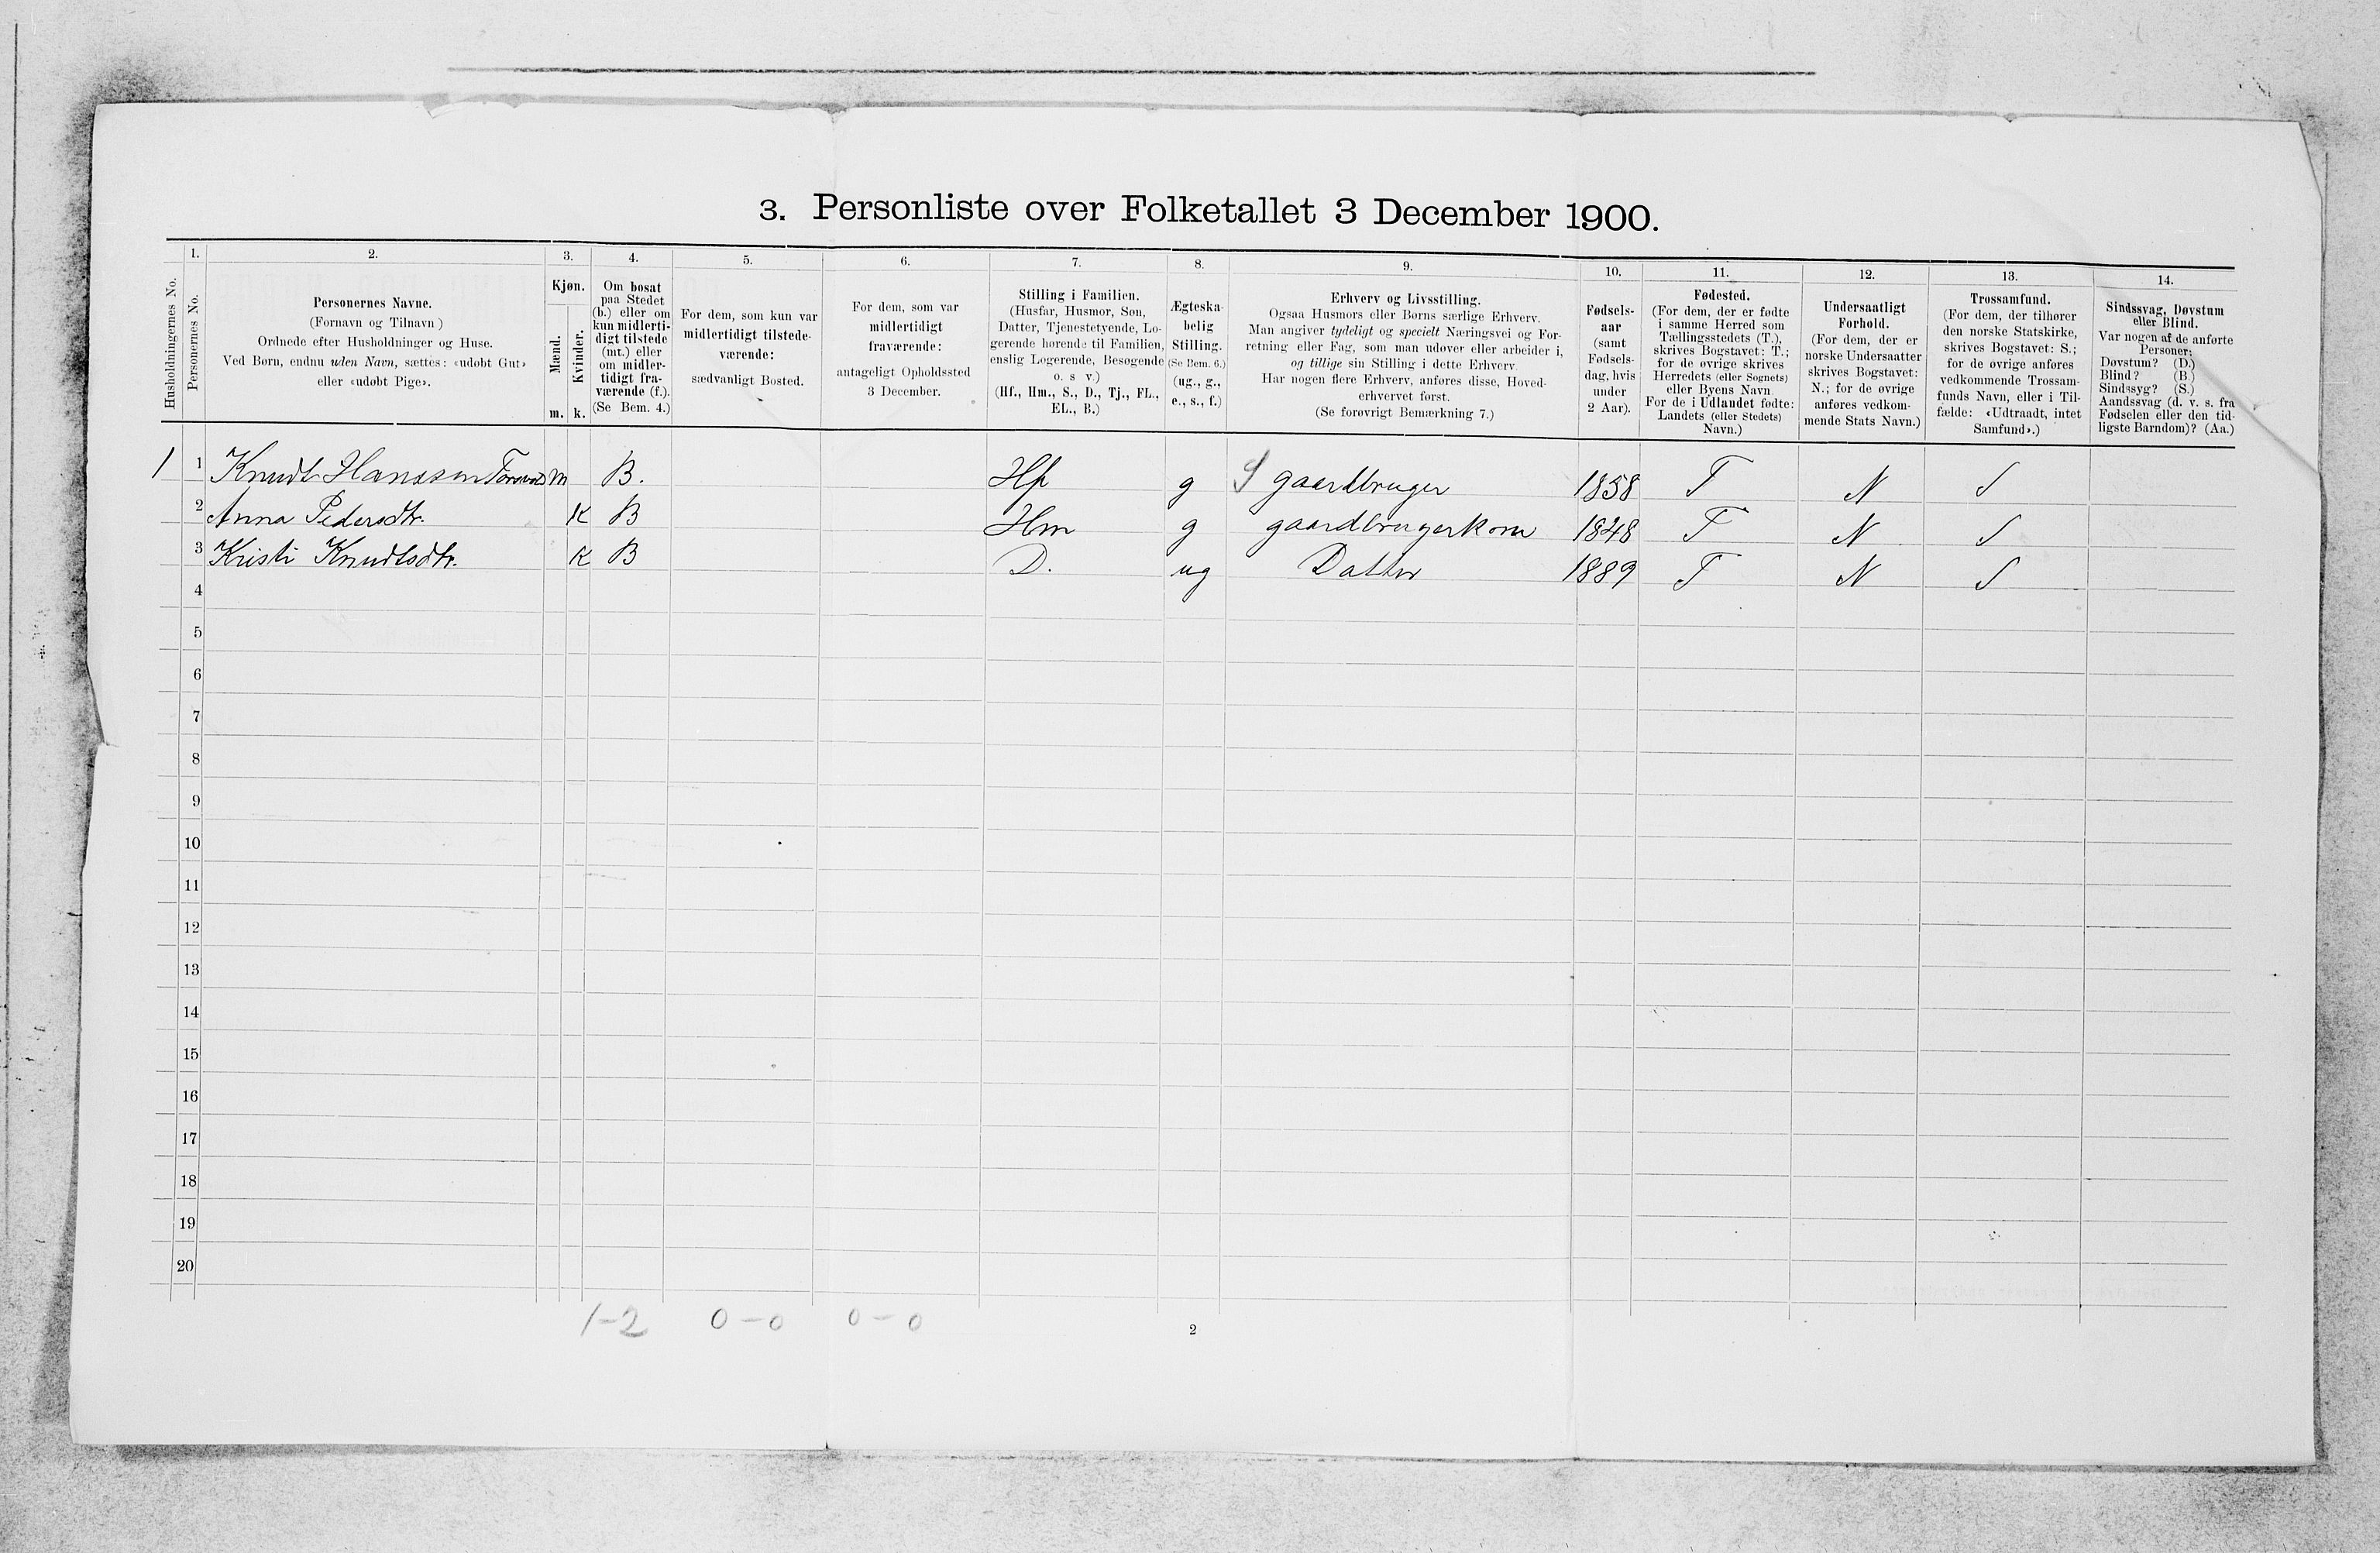 3. Personliste over Folketallet 3 December 1900.
Husholdningernes No.
1.
Personernes No.
2.
Personernes Navne.
(Fornavn og Tilnavn)
Ordnede efter Husholdninger og Huse.
Ved Børn, endnu uden Navn, sættes: «udøbt Gut»
eller «udøbt Pige».
3.
Kjøn.
Mænd.
m.
Kvinder.
k.
4.
Om bosat
paa Stedet
(b.) eller om
kun midlerti-
digt tilstede
(mt.) eller
om midler-
tidigt fra-
værende (f.).
(Se Bem. 4.)
5.
For dem, som kun var
midlertidigt tilstede-
værende:
sædvanligt Bosted.
6.
For dem, som var
midlertidigt
fraværende:
antageligt Opholdssted
3 December.
7.
Stilling i Familien.
(Husfar, Husmor, Søn,
Datter, Tjenestetyende, Lo-
gerende hørende til Familien,
enslig Logerende, Besøgende
o. s v.)
(Hf., Hm., S., D., Tj., FL.,
EL., B.)
8.
Ægteska-
belig
Stilling.
(Se Bem. 6.)
(ug., g.,
e., s., f.)
9.
Erhverv og Livsstilling.
Ogsaa Husmors eller Børns særlige Erhverv.
Man angiver tydeligt og specielt Næringsvei og For-
retning eller Fag, som man udøver eller arbeider i,
og tillige sin Stilling i dette Erhverv.
Har nogen flere Erhverv, anføres disse, Hoved-
erhvervet først.
(Se forøvrigt Bemærkning 7.)
10.
Fødsels-
aar
(samt
Fødsels-
dag, hvis
under
2 Aar).
11.
Fødested.
(For dem, der er fødte
i samme Herred som
Tællingsstedets (T.),
skrives Bogstavet: T.;
for de øvrige skrives
Herredets (eller Sognets)
eller Byens Navn.
For de i Udlandet fødte:
Landets (eller Stedets)
Navn.)
12.
Undersaatligt
Forhold.
(For dem, der er
norske Undersaatter
skrives Bogstavet:
N.; for de øvrige
anføres vedkom-
mende Stats Navn.)
13.
Trossamfund.
(For dem, der tilhører
den norske Statskirke,
skrives Bogstavet: S.;
for de øvrige anføres
vedkommende Trossam-
funds Navn, eller i Til-
fælde: «Udtraadt, intet
Samfund».)
14.
Sindssvag, Døvstum
eller Blind.
Var nogen af de anførte
Personer:
Døvstum? (D.)
Blind? (B.)
Sindssyg? (S.)
Aandssvag (d. v. s. fra
Fødselen eller den tid-
ligste Barndom)? (Aa.)
1 1 Knudt Hanssen m B. Hf g S gaardbruger 1858 T N S
2 Anna Pedersdtr. K B Hm g gaardbrugerkone 1848 T N S
3 Kristi Knudtsdtr. K B D. ug Datter 1889 T N S
4
5
6
7
8
9
10
11
12
13
14
15
16
17
18
19
20
1-2 0-0 0-0
2